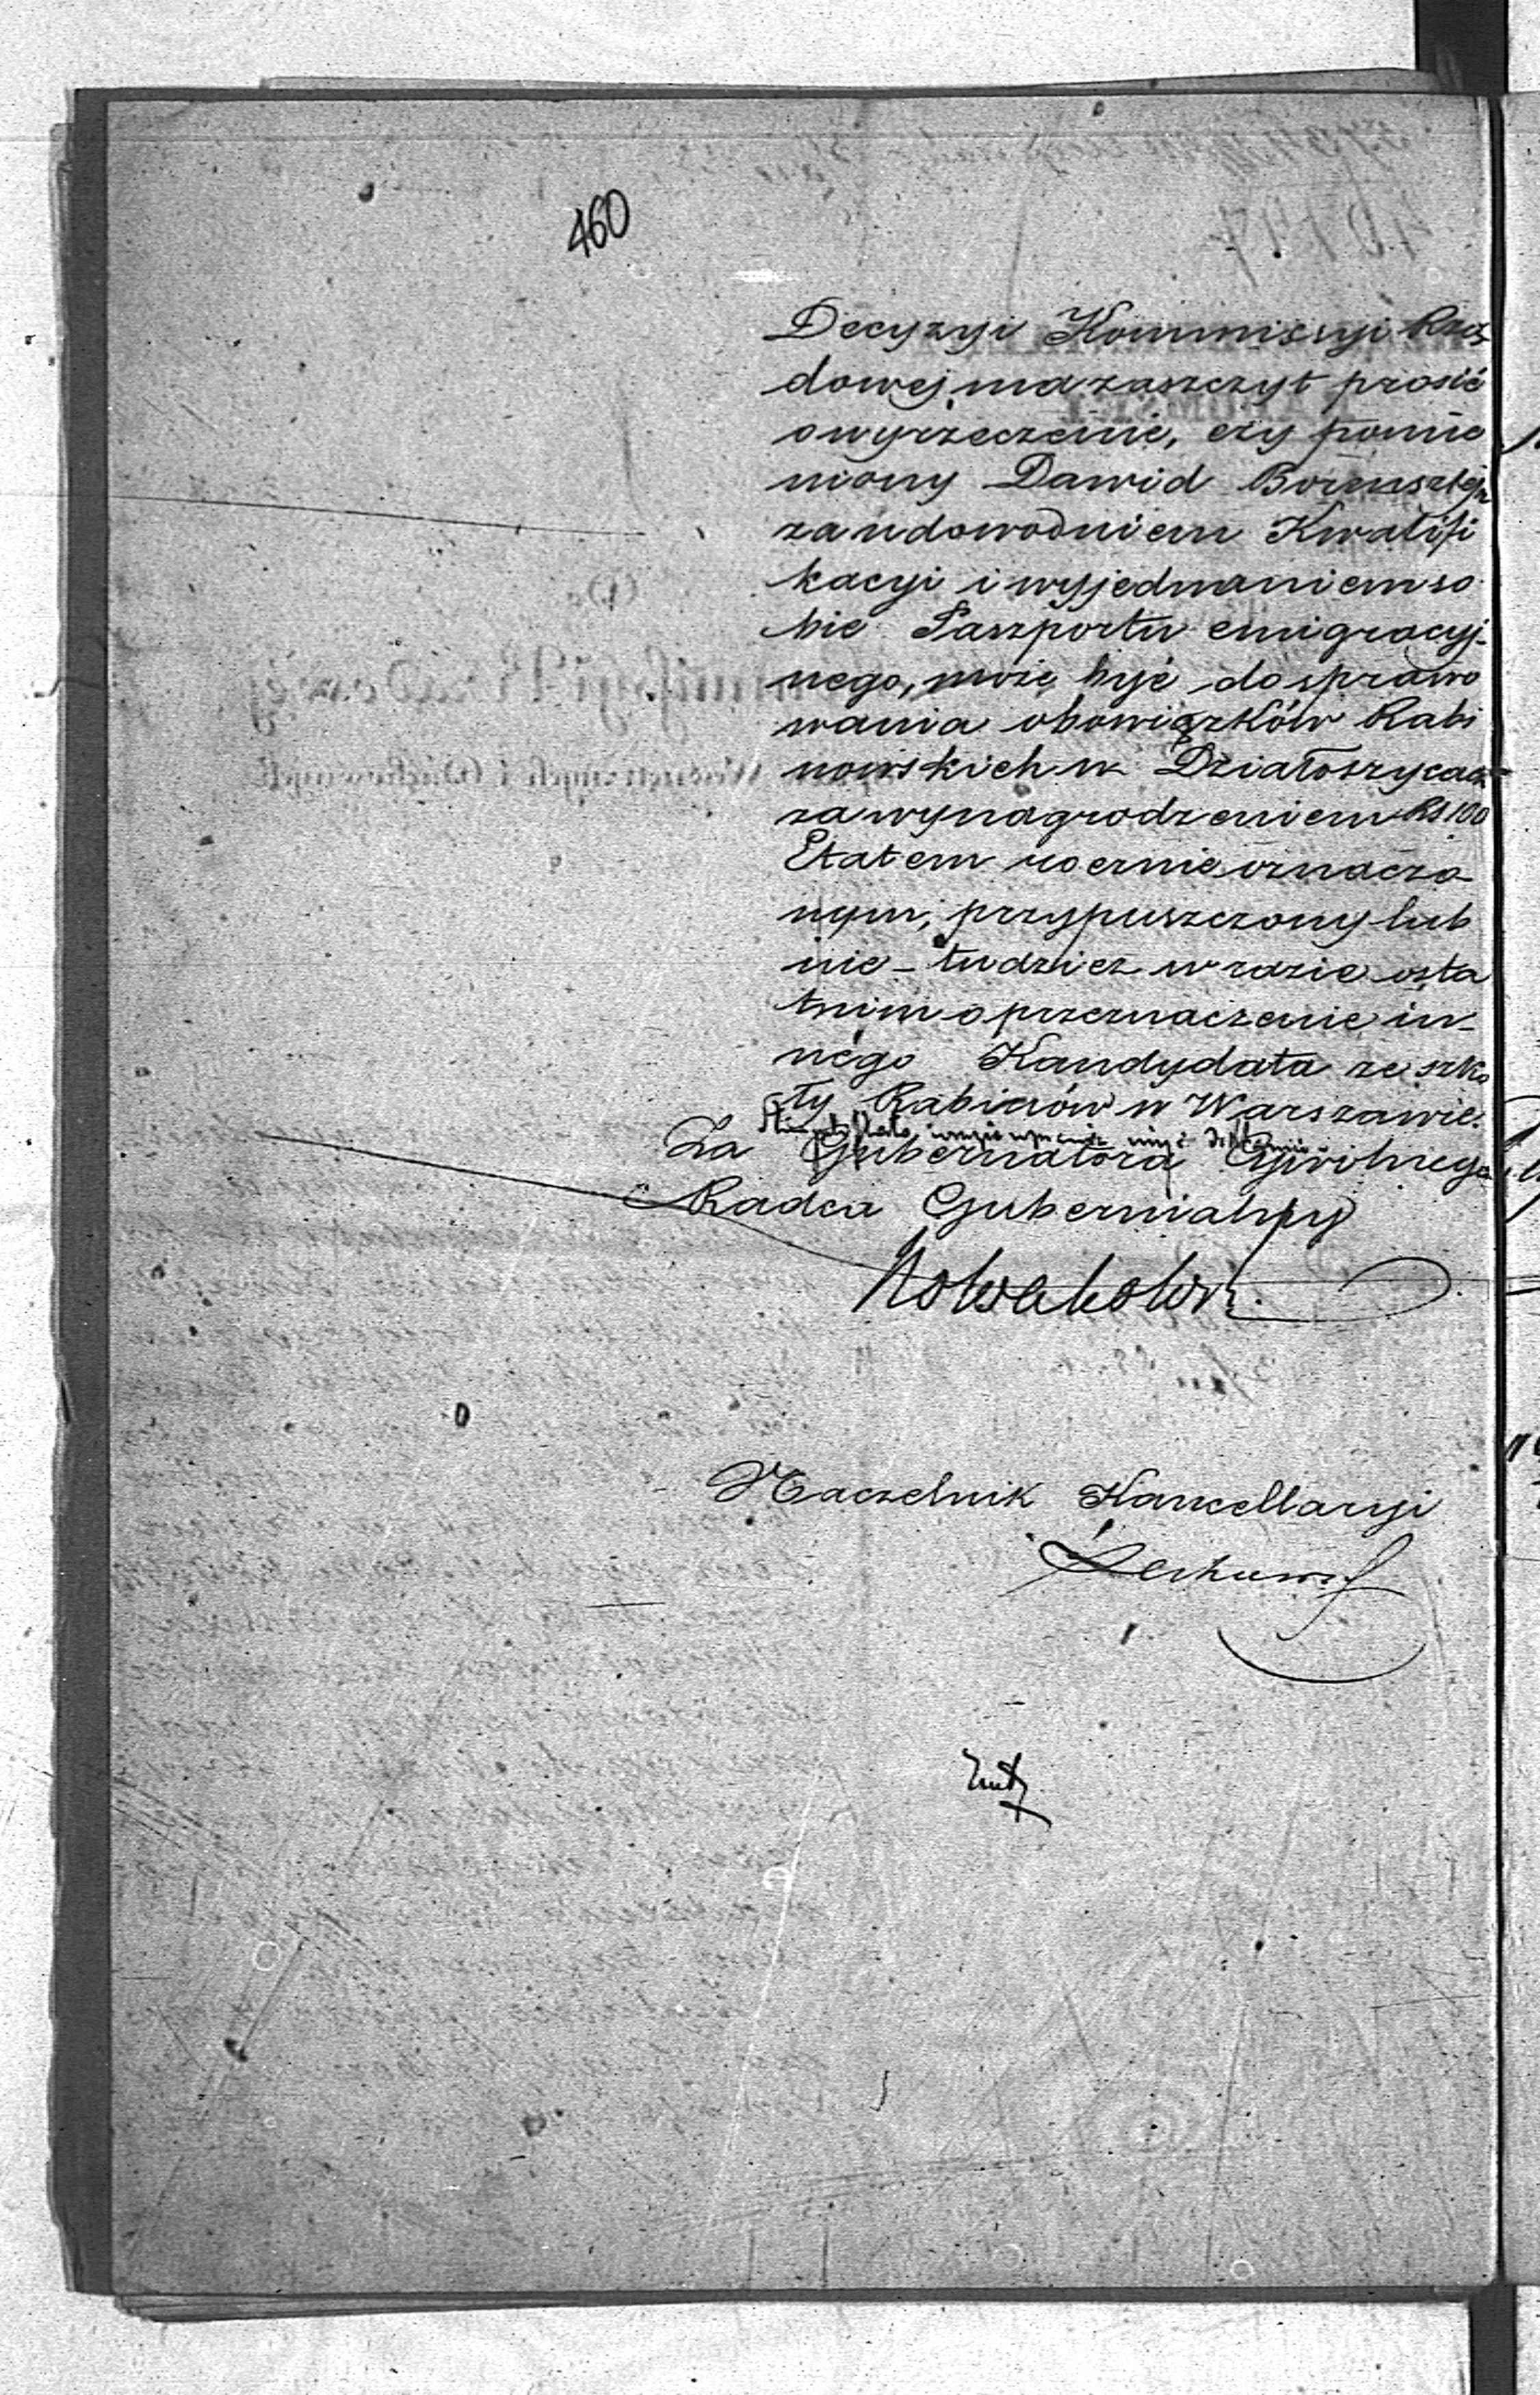 460
Decyzyi Kommissyi Rzą-
dowej, ma zaszczyt prosić
o wyrzeczenie, czy pomie
niony Dawid Borensztejn
za udowodniem Kwalifi
kacyi i wyjednaniem so
bie Paszportu emigracyj-
nego, może być do sprawo
wania obowiązków Rabi
nowskich w Działoszycach
za wynagrodzeniem RS 100
Etatem rocznie oznaczo
nym, przypuszczony lub
nie – tudzież w razie osta
tnim o przeznaczenie in-
nego Kandydata ze szko
ły Rabinów w Warszawie.
Za Gubernatora Cywilnego
Radca Gubernialny
Nowakowski
Naczelnik Kancellaryi